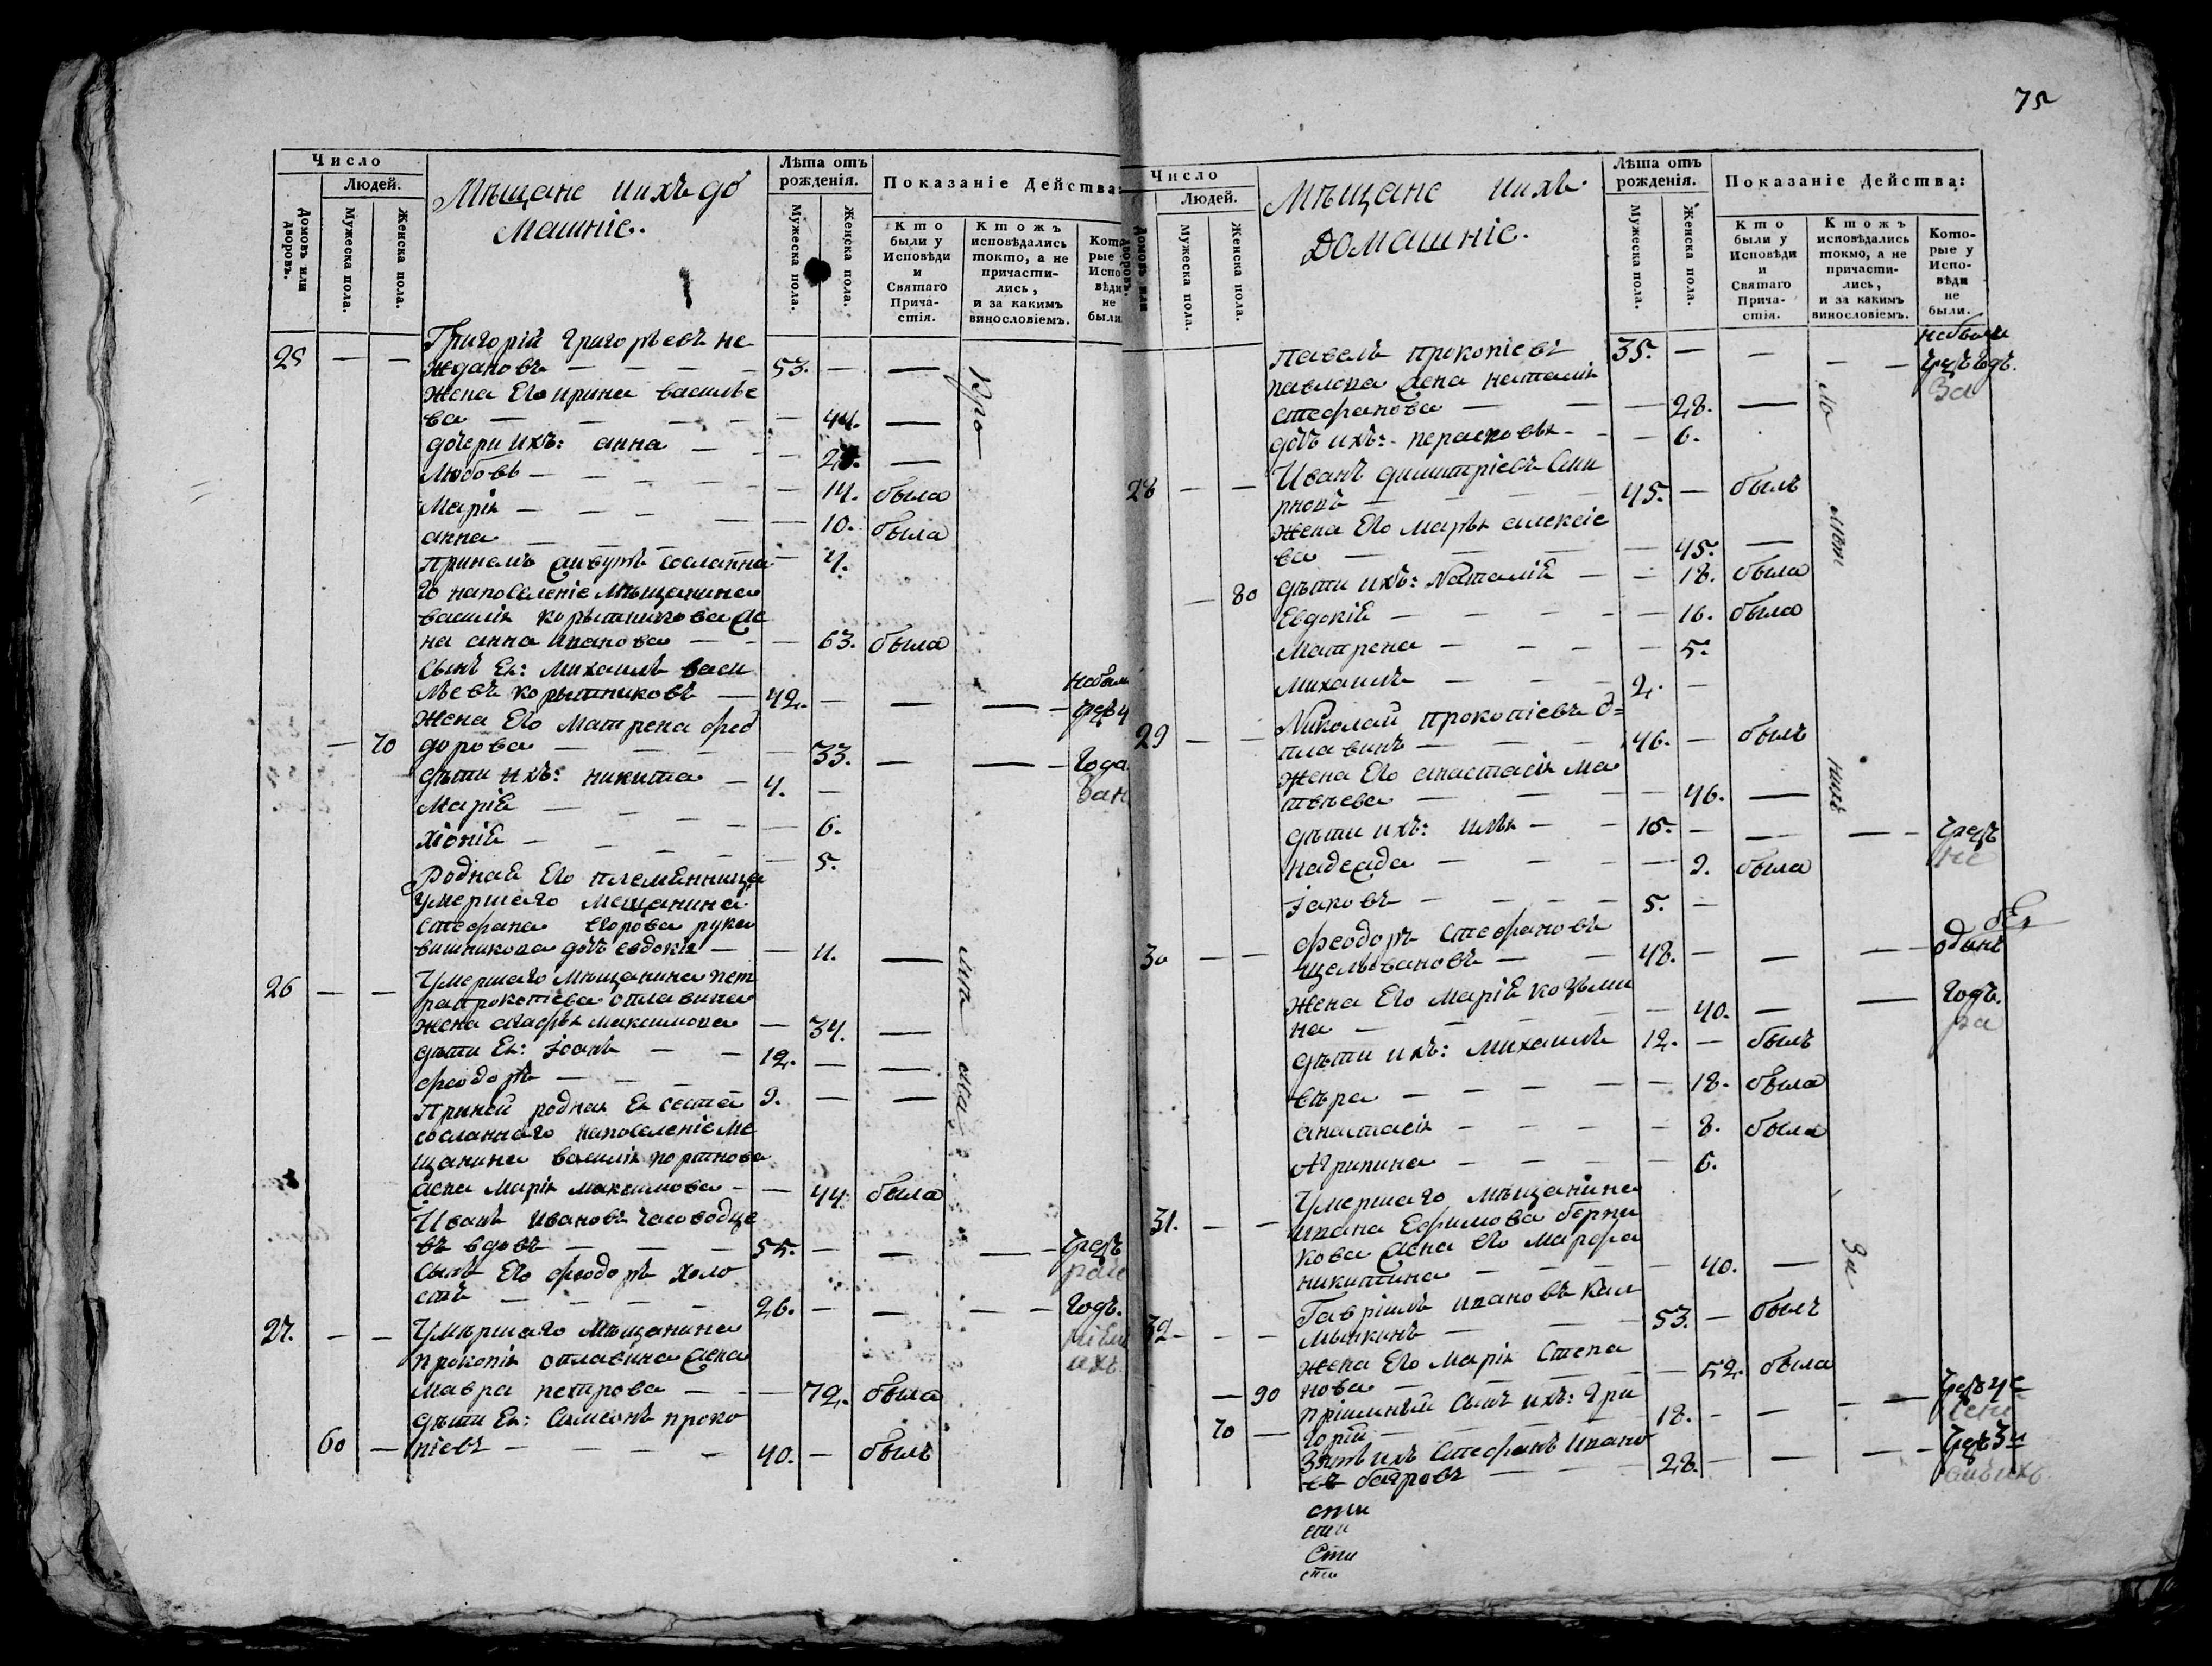 75
Число
Людей.
Домовъ или дворовъ.
Мужеска пола.
Женска пола.
Мѣщане и ихъ до
машніе.
Лѣта отъ
рожденія.
Мужеска пола.
Женска пола.
Показаніе Действа:
Кто
были у
Исповѣди
и
Святаго
Прича-
стія.
Ктожъ
исповѣдались
токмо, а не
причасти-
лись,
и за какимъ
винословіемъ.
Кото
рые
Испо
вѣди
не
были
25 — — Григорій Григорьевъ не
ждановъ — 53. — —
Жена Его ирина василье
ва — 44. —
дочери ихъ: анна — —
Любовь — 14. была
Марія — 10. была
анна — 4.
При немъ живутъ сосланна
го на поселеніе мѣщанина
василія корытникова же
на анна иванова — 63. была
Сынъ Ея: Михаилъ васи
льевъ корытниковъ — 42. — — — небыли
Жена Его Матрена фео
— 70 дорова — 33. — — года.
дѣти ихъ: никита — 4. —
Марія — 6.
Хіонія — 5.
Родная Его племянница
умершаго мещанина
стефана егорова рука
вишникова дочь евдокія — 11. —
26 — — Умершаго мѣщанина пет
ра прокопіева оплавина
жена агафья максимова — 34. —
дѣти Ея: Іоанъ — 12. — —
феодоръ — 9. — —
При ней родная Ея сестра
сосланнаго на поселеніе ме
щанина василія портнова
жена Марія максимова — 44. была
Иванъ Ивановъ часоводце
въ вдовъ — 55. — — — чрезъ
сынъ Его феодоръ холо
стъ — 26. — — — годъ.
27. — — Умершаго мѣщанина
прокопія оплавина жена
мавра петрова — 72. была
дѣти Ея: Самсонъ проко
60 — піевъ — 40. — былъ
Число
Людей.
Домовъ или дворовъ.
Мужеска пола.
Женска пола.
Мѣщане и ихъ
домашніе.
Лѣта отъ
рожденія.
Мужеска пола.
Женска пола.
Показаніе Действа:
Кто
были у
Исповѣди
и
Святаго
Прича-
стія.
Ктожъ
исповѣдались
токмо, а не
причасти-
лись,
и за какимъ
винословіемъ.
Кото-
рые у
Испо-
вѣди
не
были.
небыли
павелъ прокопіевъ 35. — — — чрезъ годъ.
павлова жена наталія
стефанова — 28. —
дочь ихъ: парасковья — 6.
28 — — Иванъ димитріевъ сми
рновъ — 45. — былъ
жена Его марья алексіе
ва — 45. —
— 80 дѣти ихъ: Наталія — 18. была
Евдокія — 16. была
Матрена — 5.
михаилъ — 2. —
29 — — Николай прокопіевъ о=
плавинъ — 46. — былъ
жена Его анастасія ма
твѣева — 46. —
дѣти ихъ: илья — 15. — — — чрезъ
надежда — 9. была
Іаковъ — 5. —
30 — — феодоръ стефановъ
щеловановъ — 48. — — — одинъ
жена Его марія козьми
на — 40. — — годъ.
дѣти ихъ: михаилъ 12. — былъ
вѣра — 18. была
анастасія — 8. была
Агрипина — 6.
31. — — Умершаго мѣщанина
ивана Ефимова
кова жена его марфа
никитина — 40. —
32 — — Гавріилъ ивановъ кал
мыкинъ — 53. — былъ
жена Его марія степа
— 90 нова — 52. была
пріимный сынъ ихъ: гри
70 — горій — 18. — — —
Зять ихъ стефанъ ивано
въ — 28. — — —
сти
сти
Сти
сти